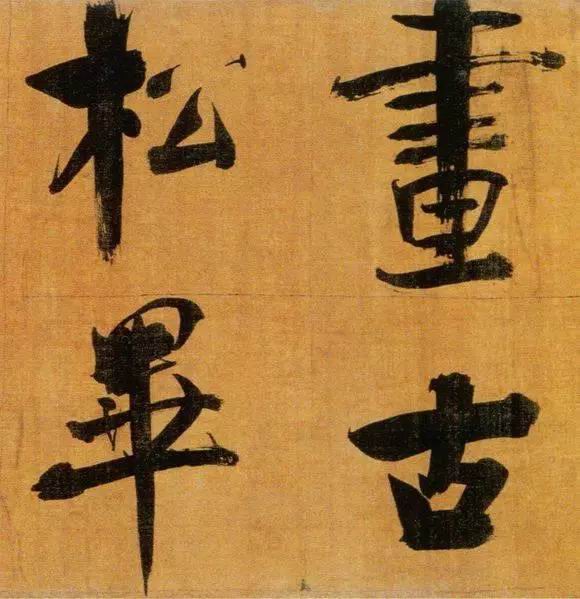 畫古
松畢